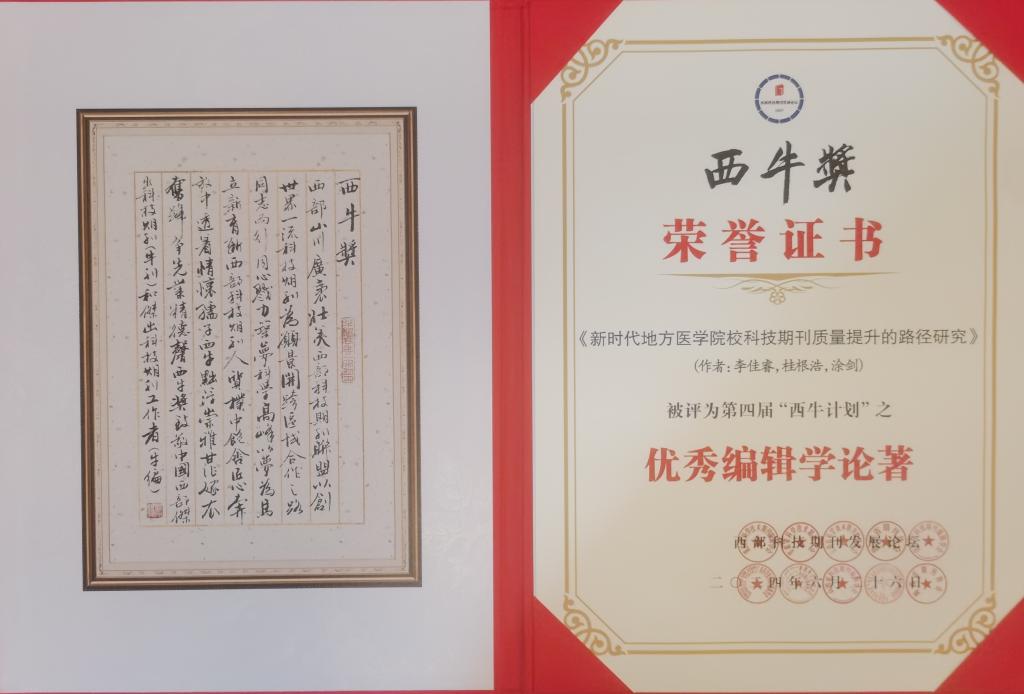 西牛獎
西部山川廣袤壯美西部科技期刊聯盟以創
世界一流科技期刊為願景開跨區域合作之路
同志而行同心勠力築夢科學高峰以夢為馬
立新有西部科技期刊人質樸中飽含匠心奔
放中透着情懷孺子西牛點滴出崇雅甘作嫁衣
奮蹄爭先業精德馨西牛獎致敬中國西部傑
出科技期刊(牛刊)和傑出科技期刊工作者(牛編)
西牛獎
荣誉证书
《新时代地方医学院校科技期刊质量提升的路径研究》
(作者:李佳睿,桂根浩,涂剑)
被评为第四届“西牛计划”之
优秀编辑学论著
西部科技期刊发展论坛
二〇二四年六月二十六日